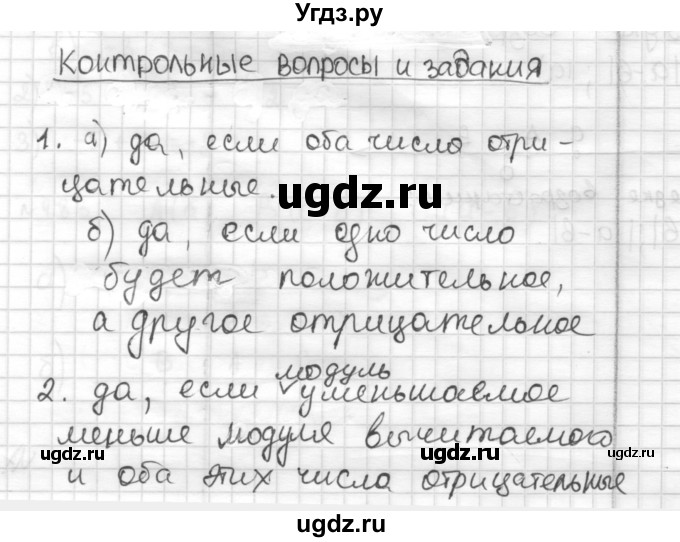 Угдз.ру
Контрольные вопросы и задания
1. а) да, если оба число отри-
цательные.
ugdz.ru
б) да, если одно число
будет положительное,
а другое отрицательное
модуль
2. да, если уменьшаемое
меньше модуля вычитаемого
ugdz.ru
ugdz.ru
и оба этих числа отрицательные
ugdz.ru